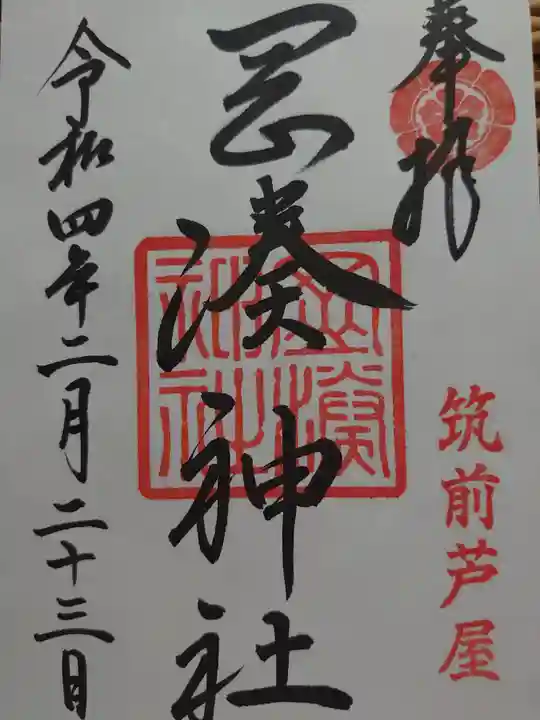 奉拝
筑前芦屋
岡湊神社
岡湊神社
令和四年二月二十三日